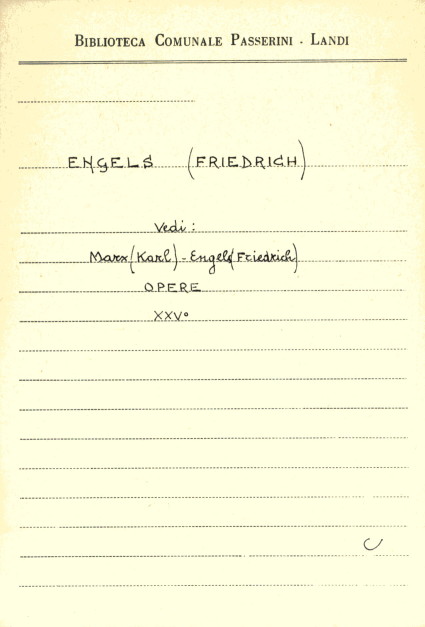 BIBLIOTECA COMUNALE PASSERINI - LANDI
ENGELS (FRIEDRICH)
Vedi:
Marx (Karl) - Engels (Friedrich)
OPERE
XXV°
C